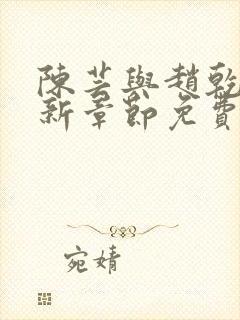 陳芸與趙乾
新章節免費
宛婧